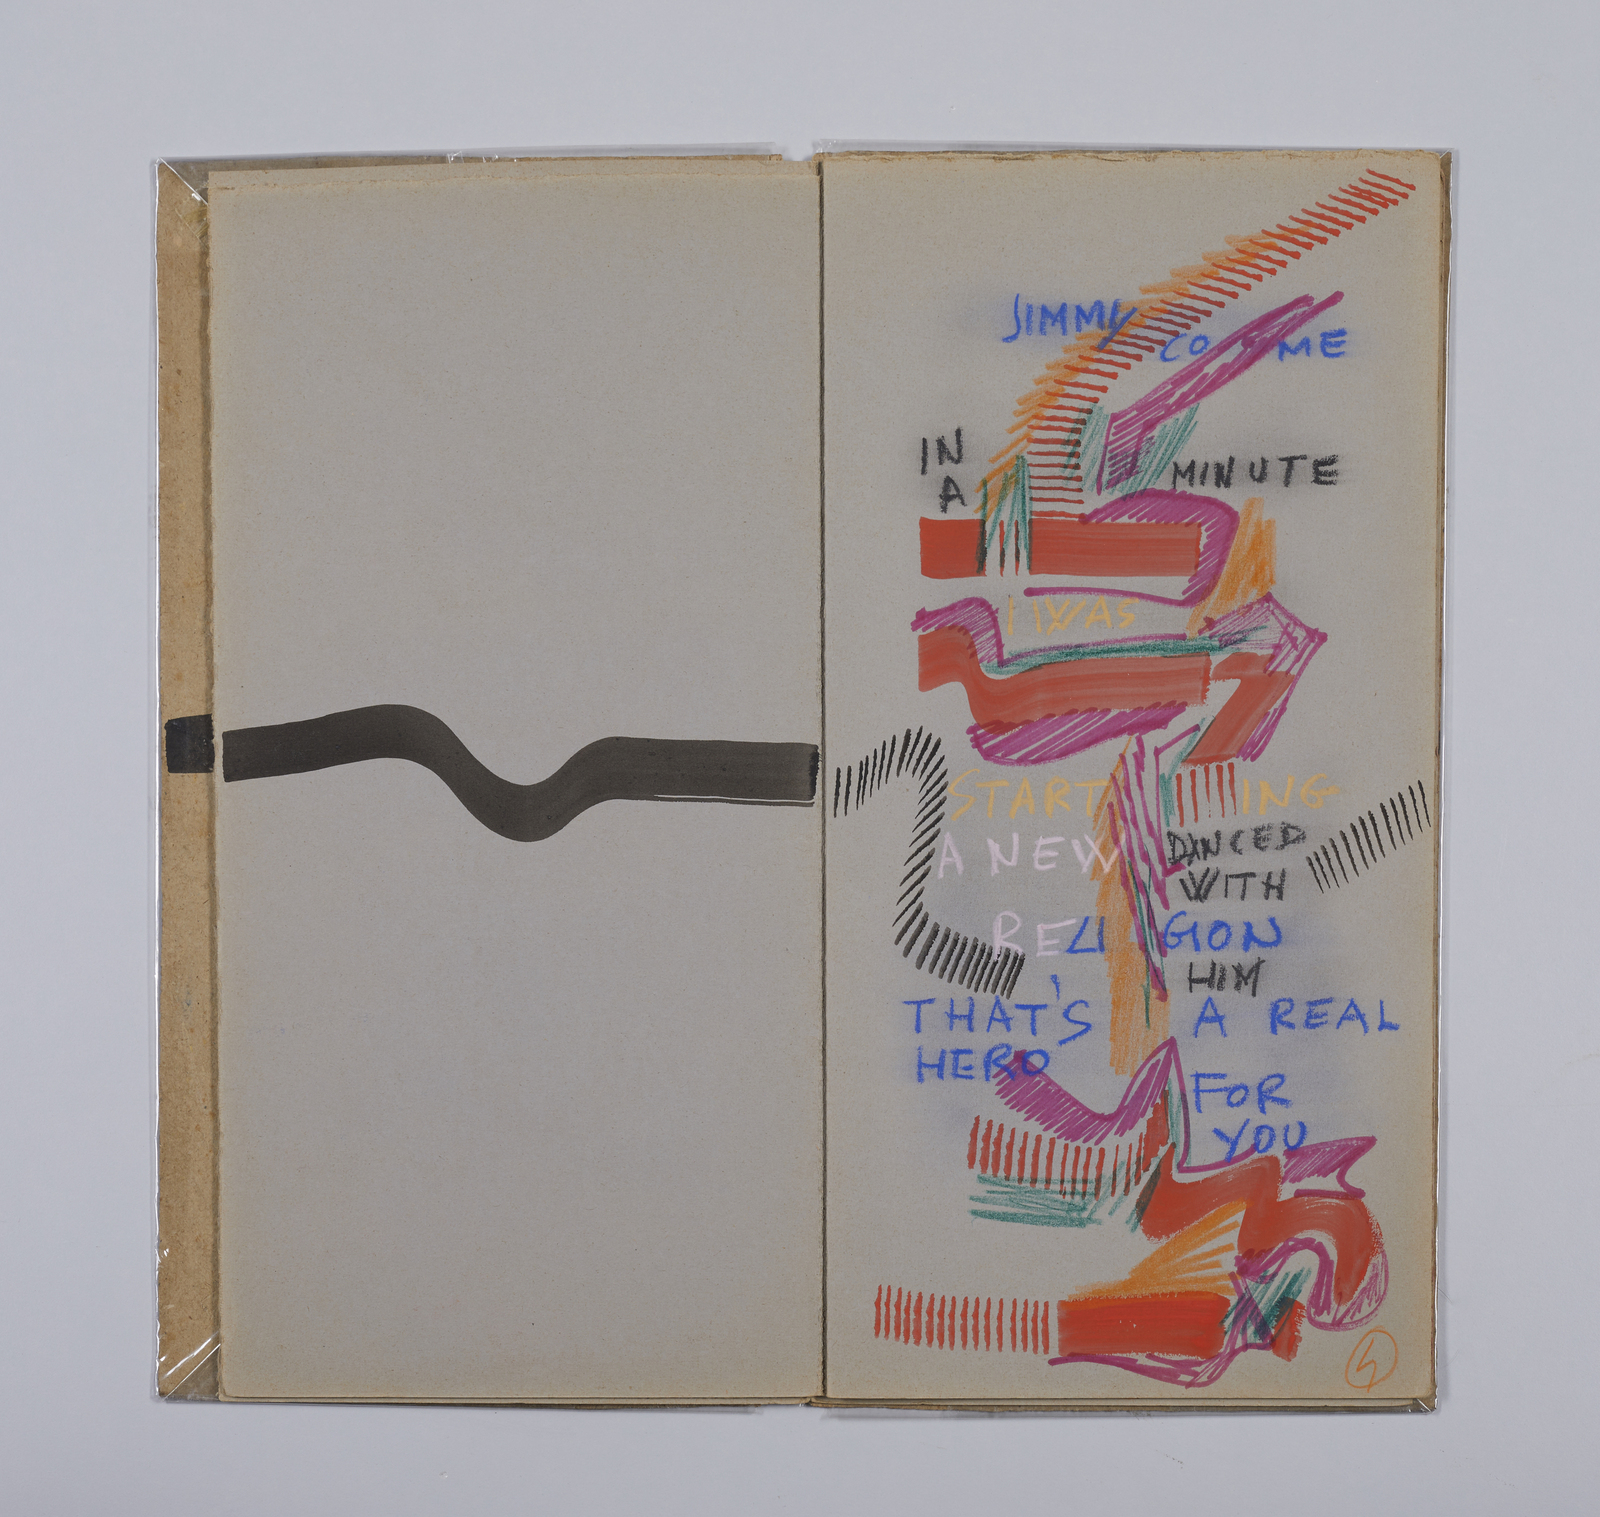 JIMMY
COME
IN
A MINUTE
I WAS
STARTING
A NEW DANCED
WITH
RELIGION
HIM
THAT'S A REAL
HERO
FOR
YOU